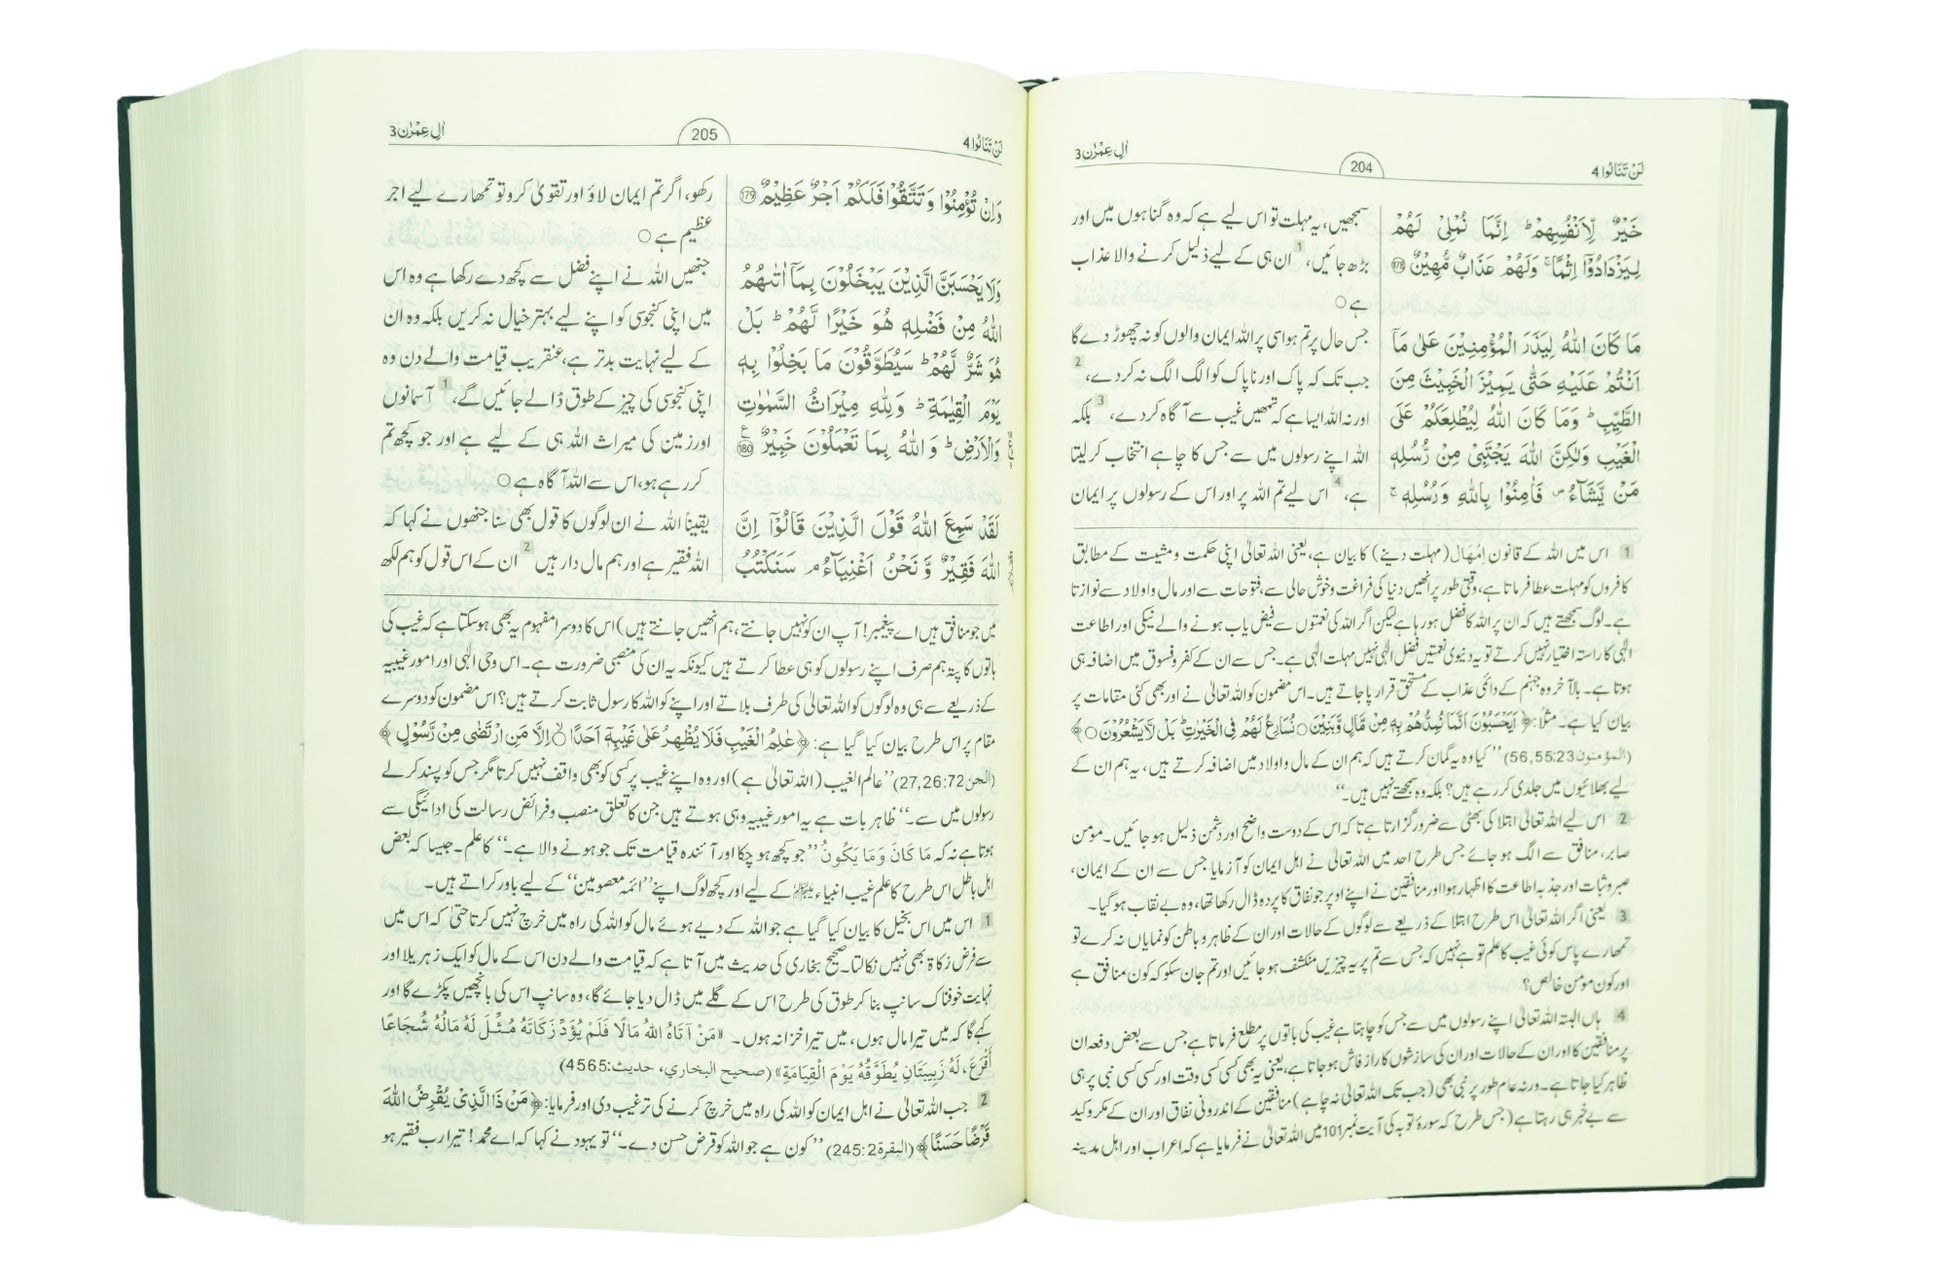 لَنْ تَنَالُوا 4
204
اٰلِ عِمْرٰن 3
خَيْرٌ لِّاَنْفُسِهِمْ ؕ اِنَّمَا نُمْلِيْ لَهُمْ
لِيَزْدَادُوْۤا اِثْمًا ۚ وَلَهُمْ عَذَابٌ مُّهِيْنٌ ۝178
مَا كَانَ اللّٰهُ لِيَذَرَ الْمُؤْمِنِيْنَ عَلٰى مَاۤ
اَنْتُمْ عَلَيْهِ حَتّٰى يَمِيْزَ الْخَبِيْثَ مِنَ
الطَّيِّبِ ؕ وَمَا كَانَ اللّٰهُ لِيُطْلِعَكُمْ عَلَى
الْغَيْبِ وَلٰكِنَّ اللّٰهَ يَجْتَبِيْ مِنْ رُّسُلِهٖ
مَنْ يَّشَآءُ ۪ فَاٰمِنُوْا بِاللّٰهِ وَرُسُلِهٖ ۚ
سمجھیں، یہ مہلت تو اس لیے ہے کہ وہ گناہوں میں اور
بڑھ جائیں، 1 ان ہی کے لیے ذلیل کرنے والا عذاب
ہے ○
جس حال پر تم ہو اسی پر اللہ ایمان والوں کو نہ چھوڑ دے گا
جب تک کہ پاک اور ناپاک کو الگ الگ نہ کر دے، 2
اور نہ اللہ ایسا ہے کہ تمھیں غیب سے آگاہ کر دے، 3 بلکہ
اللہ اپنے رسولوں میں سے جس کا چاہے انتخاب کر لیتا
ہے، 4 اس لیے تم اللہ پر اور اس کے رسولوں پر ایمان
1 اس میں اللہ کے قانون اِمْهَال (مہلت دینے) کا بیان ہے، یعنی اللہ تعالیٰ اپنی حکمت و مشیت کے مطابق
کافروں کو مہلت عطا فرماتا ہے، وقتی طور پر انھیں دنیا کی فراغت و خوش حالی سے، فتوحات سے اور مال و اولاد سے نوازتا
ہے۔ لوگ سمجھتے ہیں کہ ان پر اللہ کا فضل ہو رہا ہے لیکن اگر اللہ کی نعمتوں سے فیض یاب ہونے والے نیکی اور اطاعت
الٰہی کا راستہ اختیار نہیں کرتے تو یہ دنیوی نعمتیں فضل الٰہی نہیں مہلت الٰہی ہے۔ جس سے ان کے کفر و فسوق میں اضافہ ہی
ہوتا ہے۔ بالآخر وہ جہنم کے دائمی عذاب کے مستحق قرار پا جاتے ہیں۔ اس مضمون کو اللہ تعالیٰ نے اور بھی کئی مقامات پر
بیان کیا ہے۔ مثلاً: ﴿اَيَحْسَبُوْنَ اَنَّمَا نُمِدُّهُمْ بِهٖ مِنْ مَّالٍ وَّبَنِيْنَ ○ نُسَارِعُ لَهُمْ فِي الْخَيْرٰتِ ؕ بَلْ لَّا يَشْعُرُوْنَ ○﴾
(المؤمنون 23:55,56) ”کیا وہ یہ گمان کرتے ہیں کہ ہم ان کے مال و اولاد میں اضافہ کرتے ہیں، یہ ہم ان کے
لیے بھلائیوں میں جلدی کر رہے ہیں؟ بلکہ وہ سمجھتے نہیں ہیں۔“
2 اس لیے اللہ تعالیٰ ابتلا کی بھٹی سے ضرور گزارتا ہے تاکہ اس کے دوست واضح اور دشمن ذلیل ہو جائیں۔ مومن
صابر، منافق سے الگ ہو جائے جس طرح احد میں اللہ تعالیٰ نے اہل ایمان کو آزمایا جس سے ان کے ایمان،
صبر و ثبات اور جذبہ اطاعت کا اظہار ہوا اور منافقین نے اپنے اوپر جو نفاق کا پردہ ڈال رکھا تھا، وہ بے نقاب ہو گیا۔
3 یعنی اگر اللہ تعالیٰ اس طرح ابتلا کے ذریعے سے لوگوں کے حالات اور ان کے ظاہر و باطن کو نمایاں نہ کرے تو
تمھارے پاس کوئی غیب کا علم تو ہے نہیں کہ جس سے تم پر یہ چیزیں منکشف ہو جائیں اور تم جان سکو کہ کون منافق ہے
اور کون مومن خالص؟
4 ہاں البتہ اللہ تعالیٰ اپنے رسولوں میں سے جس کو چاہتا ہے غیب کی باتوں پر مطلع فرماتا ہے جس سے بعض دفعہ ان
پر منافقین کا اور ان کے حالات اور ان کی سازشوں کا راز فاش ہو جاتا ہے، یعنی یہ بھی کسی کسی وقت اور کسی کسی نبی پر ہی
ظاہر کیا جاتا ہے۔ ورنہ عام طور پر نبی بھی (جب تک اللہ تعالیٰ نہ چاہے) منافقین کے اندرونی نفاق اور ان کے مکر و کید
سے بے خبر ہی رہتا ہے (جس طرح کہ سورۂ توبہ کی آیت نمبر 101 میں اللہ تعالیٰ نے فرمایا ہے کہ اعراب اور اہل مدینہ
لَنْ تَنَالُوا 4
205
اٰلِ عِمْرٰن 3
وَاِنْ تُؤْمِنُوْا وَتَتَّقُوْا فَلَكُمْ اَجْرٌ عَظِيْمٌ ۝179
وَلَا يَحْسَبَنَّ الَّذِيْنَ يَبْخَلُوْنَ بِمَاۤ اٰتٰىهُمُ
اللّٰهُ مِنْ فَضْلِهٖ هُوَ خَيْرًا لَّهُمْ ؕ بَلْ
هُوَ شَرٌّ لَّهُمْ ؕ سَيُطَوَّقُوْنَ مَا بَخِلُوْا بِهٖ
يَوْمَ الْقِيٰمَةِ ؕ وَلِلّٰهِ مِيْرَاثُ السَّمٰوٰتِ
وَالْاَرْضِ ؕ وَاللّٰهُ بِمَا تَعْمَلُوْنَ خَبِيْرٌ ۝180
لَقَدْ سَمِعَ اللّٰهُ قَوْلَ الَّذِيْنَ قَالُوْۤا اِنَّ
اللّٰهَ فَقِيْرٌ وَّنَحْنُ اَغْنِيَآءُ ۘ سَنَكْتُبُ
رکھو، اگر تم ایمان لاؤ اور تقویٰ کرو تو تمھارے لیے اجر
عظیم ہے ○
جنھیں اللہ نے اپنے فضل سے کچھ دے رکھا ہے وہ اس
میں اپنی کنجوسی کو اپنے لیے بہتر خیال نہ کریں بلکہ وہ ان
کے لیے نہایت بدتر ہے، عنقریب قیامت والے دن وہ
اپنی کنجوسی کی چیز کے طوق ڈالے جائیں گے، 1 آسمانوں
اور زمین کی میراث اللہ ہی کے لیے ہے اور جو کچھ تم
کر رہے ہو، اس سے اللہ آگاہ ہے ○
یقیناً اللہ نے ان لوگوں کا قول بھی سنا جنھوں نے کہا کہ
اللہ فقیر ہے اور ہم مال دار ہیں 2 ان کے اس قول کو ہم لکھ
میں جو منافق ہیں اے پیغمبر! آپ ان کو نہیں جانتے، ہم انھیں جانتے ہیں) اس کا دوسرا مفہوم یہ بھی ہو سکتا ہے کہ غیب کی
باتوں کا پتہ ہم صرف اپنے رسولوں کو ہی عطا کرتے ہیں کیونکہ یہ ان کی منصبی ضرورت ہے۔ اس وحی الٰہی اور امور غیبیہ
کے ذریعے سے ہی وہ لوگوں کو اللہ تعالیٰ کی طرف بلاتے اور اپنے کو اللہ کا رسول ثابت کرتے ہیں؟ اس مضمون کو دوسرے
مقام پر اس طرح بیان کیا گیا ہے: ﴿عٰلِمُ الْغَيْبِ فَلَا يُظْهِرُ عَلٰى غَيْبِهٖۤ اَحَدًا ○ اِلَّا مَنِ ارْتَضٰى مِنْ رَّسُوْلٍ﴾
(الجن 72:26,27) ”عالم الغیب (اللہ تعالیٰ ہے) اور وہ اپنے غیب پر کسی کو بھی واقف نہیں کرتا مگر جس کو پسند کر لے
رسولوں میں سے۔“ ظاہر بات ہے یہ امور غیبیہ وہی ہوتے ہیں جن کا تعلق منصب و فرائض رسالت کی ادائیگی سے
ہوتا ہے نہ کہ مَا كَانَ وَمَا يَكُونُ ”جو کچھ ہو چکا اور آئندہ قیامت تک جو ہونے والا ہے۔“ کا علم۔ جیسا کہ بعض
اہل باطل اس طرح کا علم غیب انبیاء علیہم السلام کے لیے اور کچھ لوگ اپنے ”ائمہ معصومین“ کے لیے باور کراتے ہیں۔
1 اس میں اس بخیل کا بیان کیا گیا ہے جو اللہ کے دیے ہوئے مال کو اللہ کی راہ میں خرچ نہیں کرتا حتیٰ کہ اس میں
سے فرض زکاۃ بھی نہیں نکالتا۔ صحیح بخاری کی حدیث میں آتا ہے کہ قیامت والے دن اس کے مال کو ایک زہریلا اور
نہایت خوفناک سانپ بنا کر طوق کی طرح اس کے گلے میں ڈال دیا جائے گا، وہ سانپ اس کی بانچھیں پکڑے گا اور
کہے گا کہ میں تیرا مال ہوں، میں تیرا خزانہ ہوں۔ «مَنْ آتَاهُ اللّٰهُ مَالًا فَلَمْ يُؤَدِّ زَكَاتَهُ مُثِّلَ لَهُ مَالُهُ شُجَاعًا
أَقْرَعَ، لَهُ زَبِيبَتَانِ يُطَوَّقُهُ يَوْمَ الْقِيَامَةِ» (صحيح البخاري، حديث: 4565)
2 جب اللہ تعالیٰ نے اہل ایمان کو اللہ کی راہ میں خرچ کرنے کی ترغیب دی اور فرمایا: ﴿مَنْ ذَا الَّذِيْ يُقْرِضُ اللّٰهَ
قَرْضًا حَسَنًا﴾ (البقرة 2:245) ”کون ہے جو اللہ کو قرض حسن دے۔“ تو یہود نے کہا کہ اے محمد! تیرا رب فقیر ہو